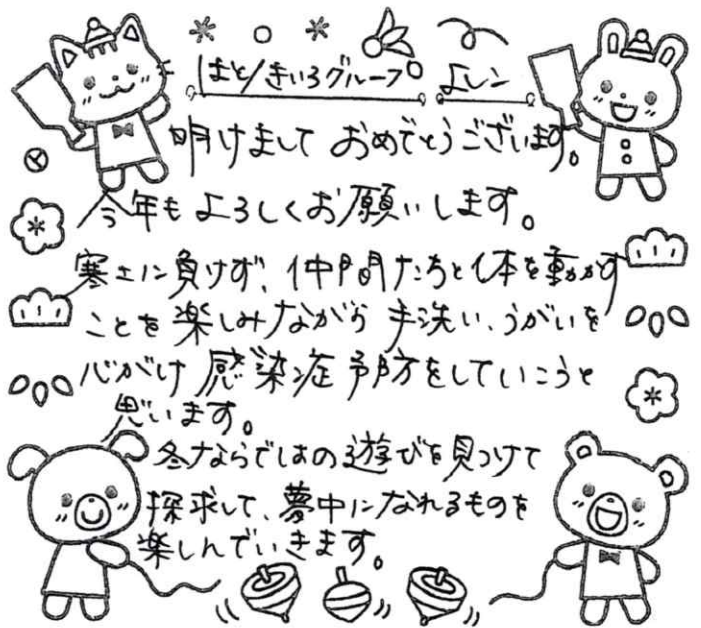 はと/きいろグループ よしン
明けまして おめでとうございます。
今年も よろしくお願いします。
寒さに負けず、仲間たちと体を動かす
ことを楽しみながら 手洗い、うがいを
心がけ 感染症予防をしていこうと
思います。
冬ならではの遊びを見つけて
探求して、夢中になれるものを
楽しんでいきます。